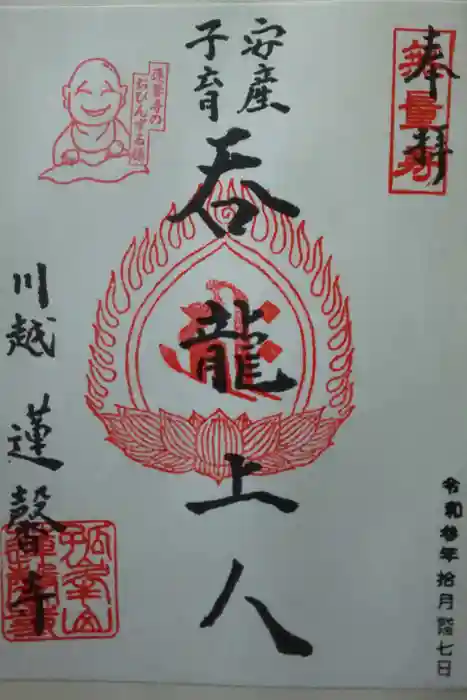 奉拝
無量寿
安産
子育
呑龍上人
蓮馨寺の
おびんずる様
川越 蓮馨寺
孤峯山
蓮馨寺
令和参年拾月
七日